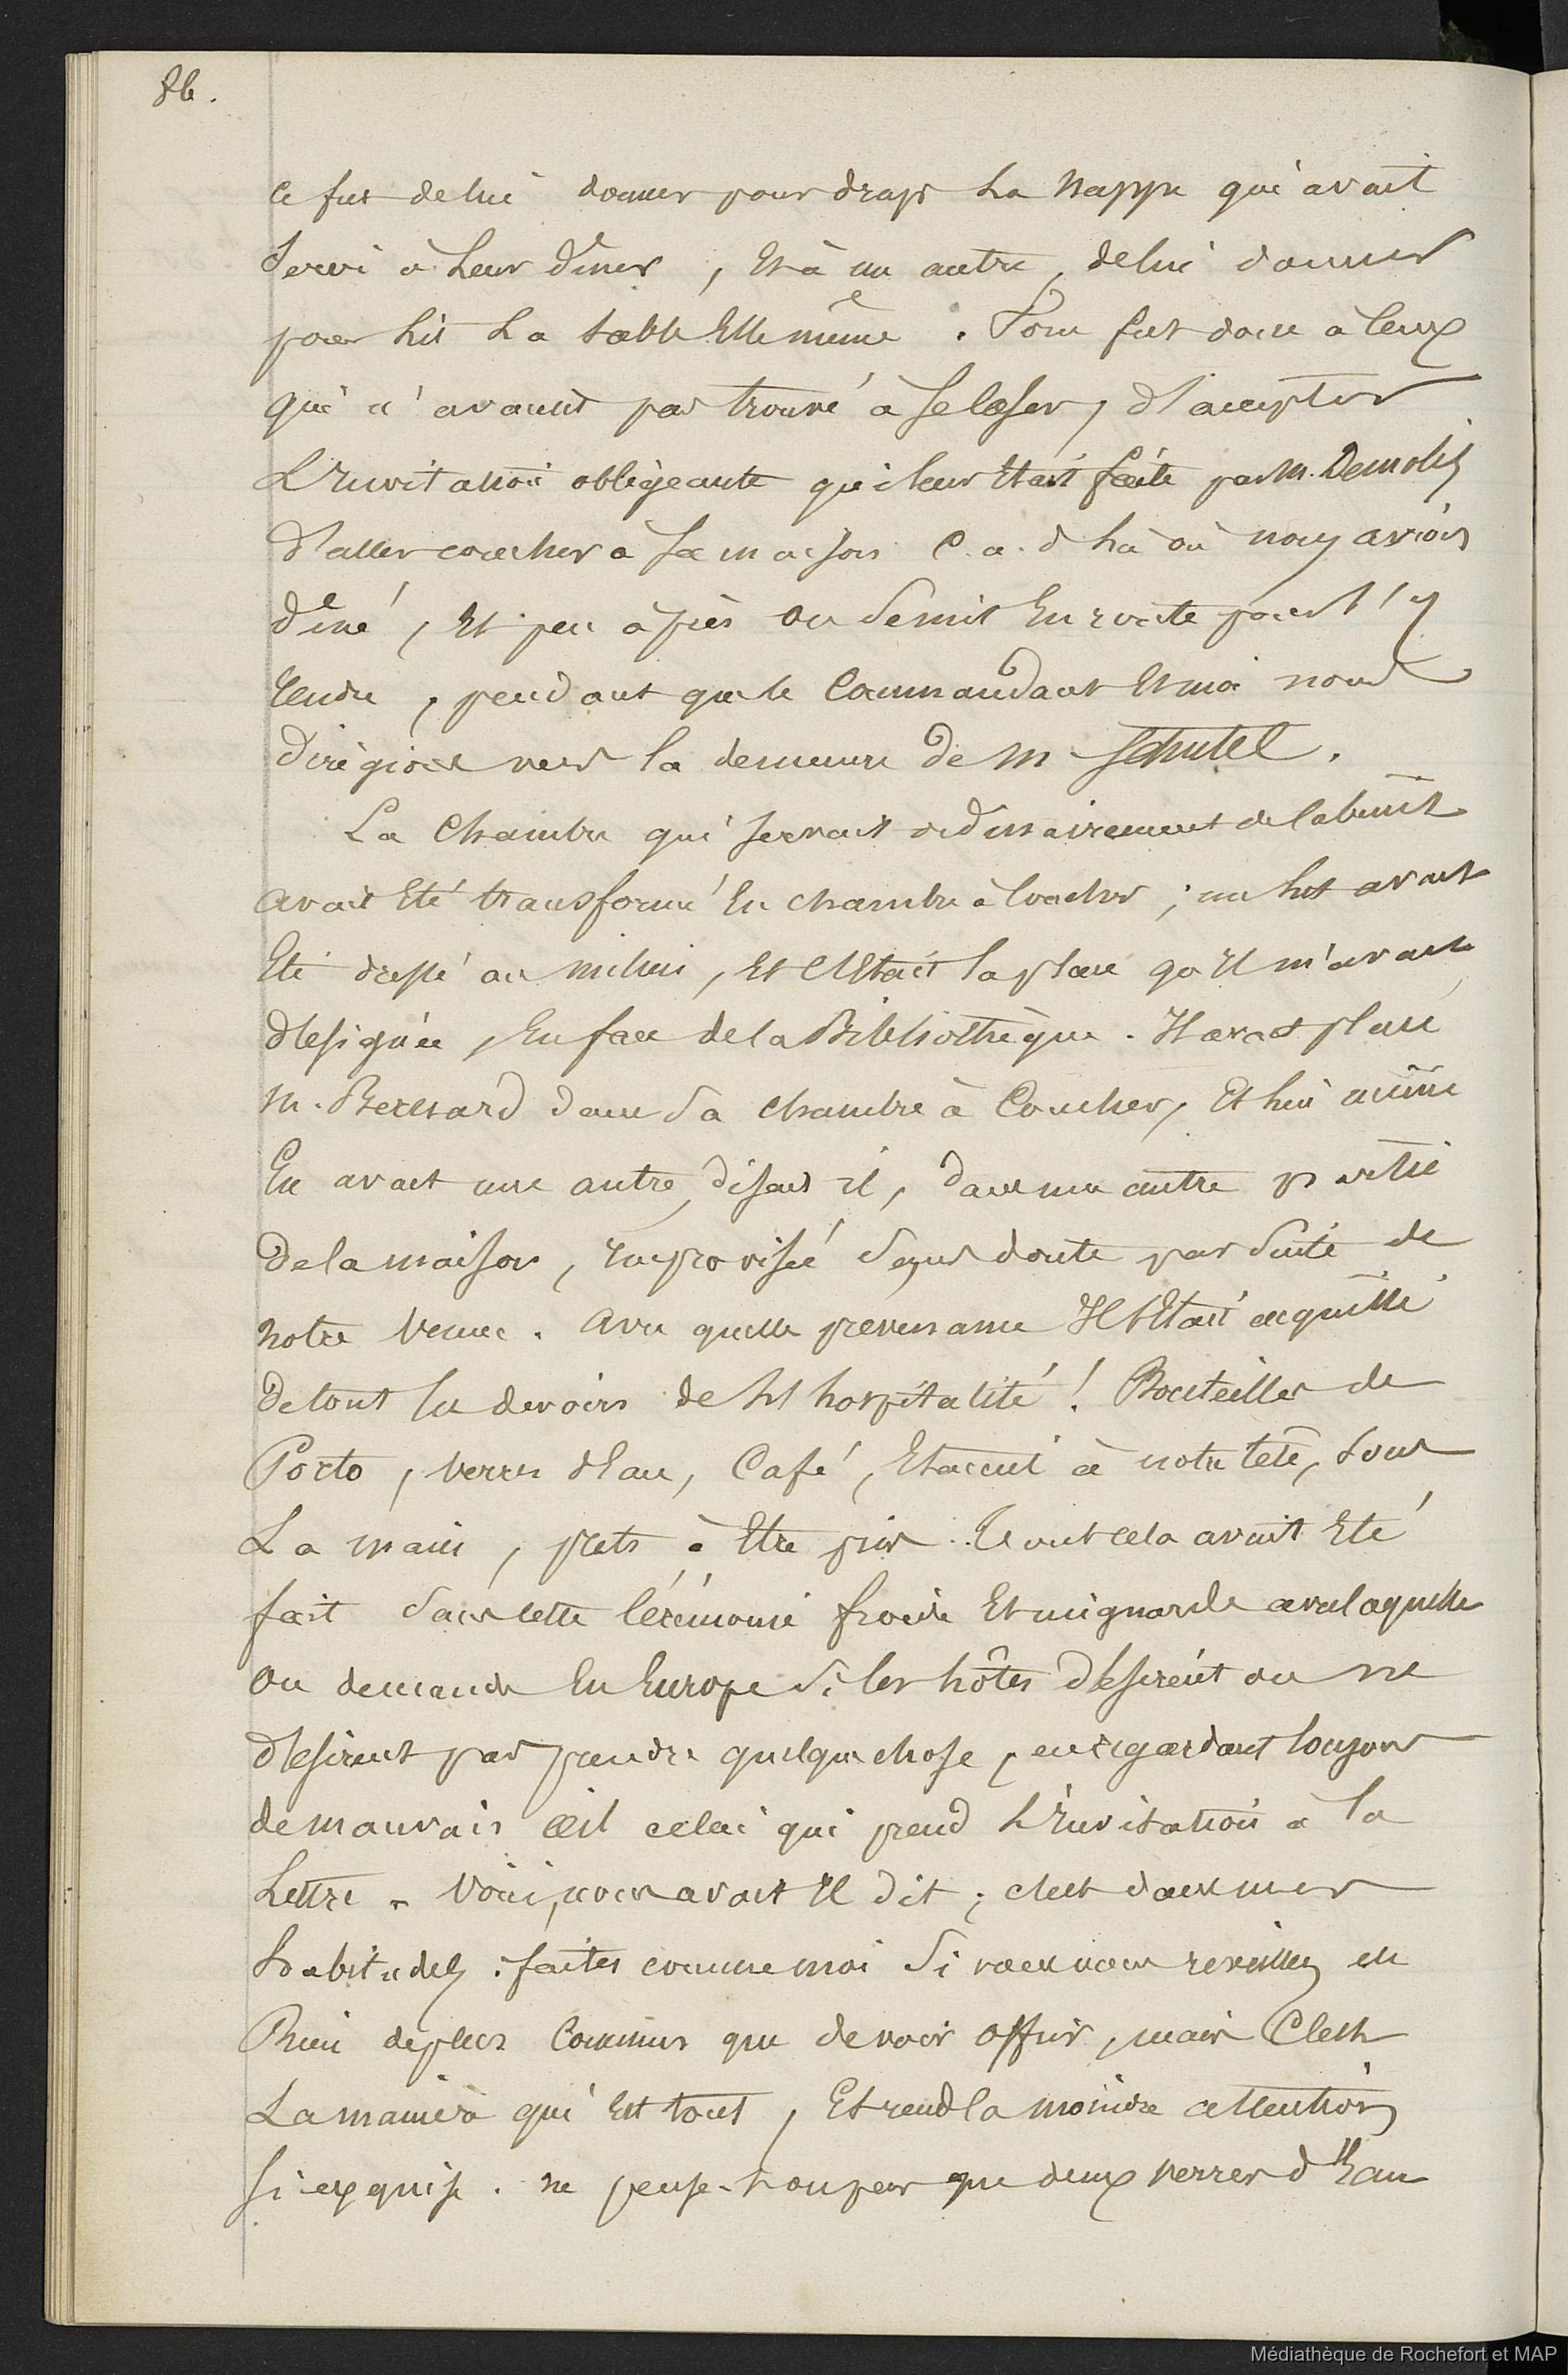 86.
ce fut de lui donner pour draps la nappe qui avait
servi à leur diner, et à un autre, de lui donner
pour lit la table elle même. Force fut donc à ceux
qui n'avaient pas trouvé à se loger, d'accepter
l'invitation obligeante qui leur était faite par M. Demolis
d'aller coucher à sa maison c.a.d là où nous avions
dîné, et peu après on se mit en route pour s'y
rendre, pendant que le Commandant et moi nous
dirigions vers la demeure de M Schutel.
La chambre qui servait ordinairement de cabinet
avait été transformé en chambre à coucher ; un lit avait
été dressé au milieu, et c'était la place qu'il m'avait
désignée, en face de la Bibliothèque. Il avait placé
M. Bernard dans sa chambre à coucher, et lui même
en avait une autre, disait il, dans une autre partie
de la maison, improvisée sans doute par suite de
notre venue. avec quelle prévenance il s'était acquitté
de tous les devoirs de l'hospitalité ! Bouteilles de
Porto, verres d'eau, café, étaient à notre tête, sous
la main, prêts à être pris. Tout cela avait été
fait sans cette cérémonie froide et mignarde avec laquelle
on demande en Europe si les hôtes désirent ou ne
désirent pas prendre quelque chose, en regardant toujours
de mauvais œil celui qui prend l'invitation à la
lettre. Voici, nous avait il dit ; c'est dans mes
habitudes : faites comme moi si vous vous réveillez
Rien de plus commun que de voir offrir, mais c'est
la manière qui est tout, et rend la moindre attention
si exquise. ne pense-t-on pas que deux verres d'Eau
Médiathèque de Rochefort et MAP